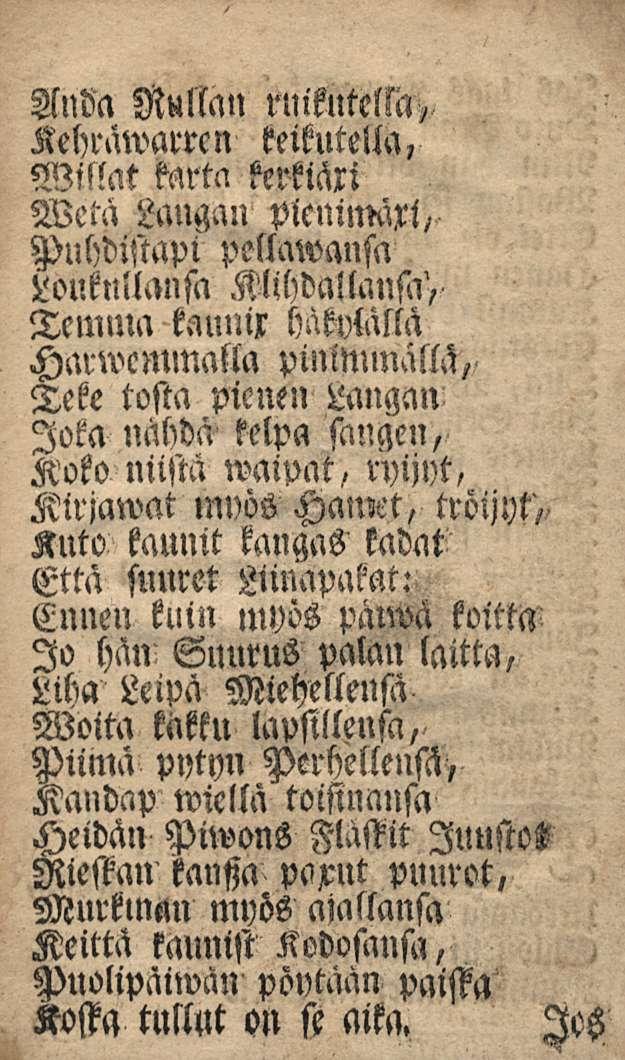 Anda Rullan ruikutella,
Kehräwarren keikutella,
Willat karta kerkiäxi
Wetä Langan pienimäxi,
Puhdistapi pellawansa
Loukullansa Klihdallansa,
Temma kaunix häkylällä
Harwemmalla pinimmällä,
Teke tosta pienen Langan
Joka nähdä kelpa sangen,
Koko niistä waipat, ryijyt,
Kirjawat myös Hamet, tröijyt,
Kuto kaunit kangas kadat
Että suuret Liinapakat:
Ennen kuin myös päiwä koitta
Jo hän Suurus palan laitta,
Liha Leipä Miehellensä
Woita kakku lapsillensa,
Piimä pytyn Perhellensä,
Kandap wiellä toisinansa
Heidän Piwons Fläskit Juustot
Rieskan kanßa paxut puurot,
Murkinan myös ajallansa
Keittä kaunist Kodosansa,
Puolipäiwän pöytään paiska
Koska tullut on se aika.
Jos